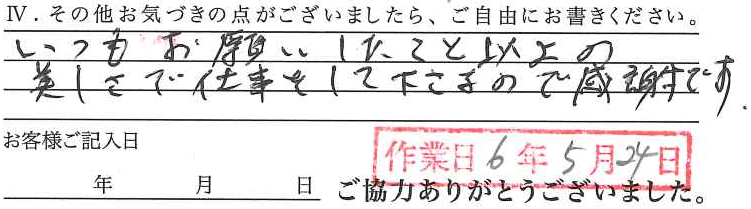 Ⅳ．その他お気づきの点がございましたら、ご自由にお書きください。
いつもお願いしたこと以上の
美しさで仕事をして下さるので感謝です.
お客様ご記入日
作業日 6年5月24日
年 月 日 ご協力ありがとうございました。